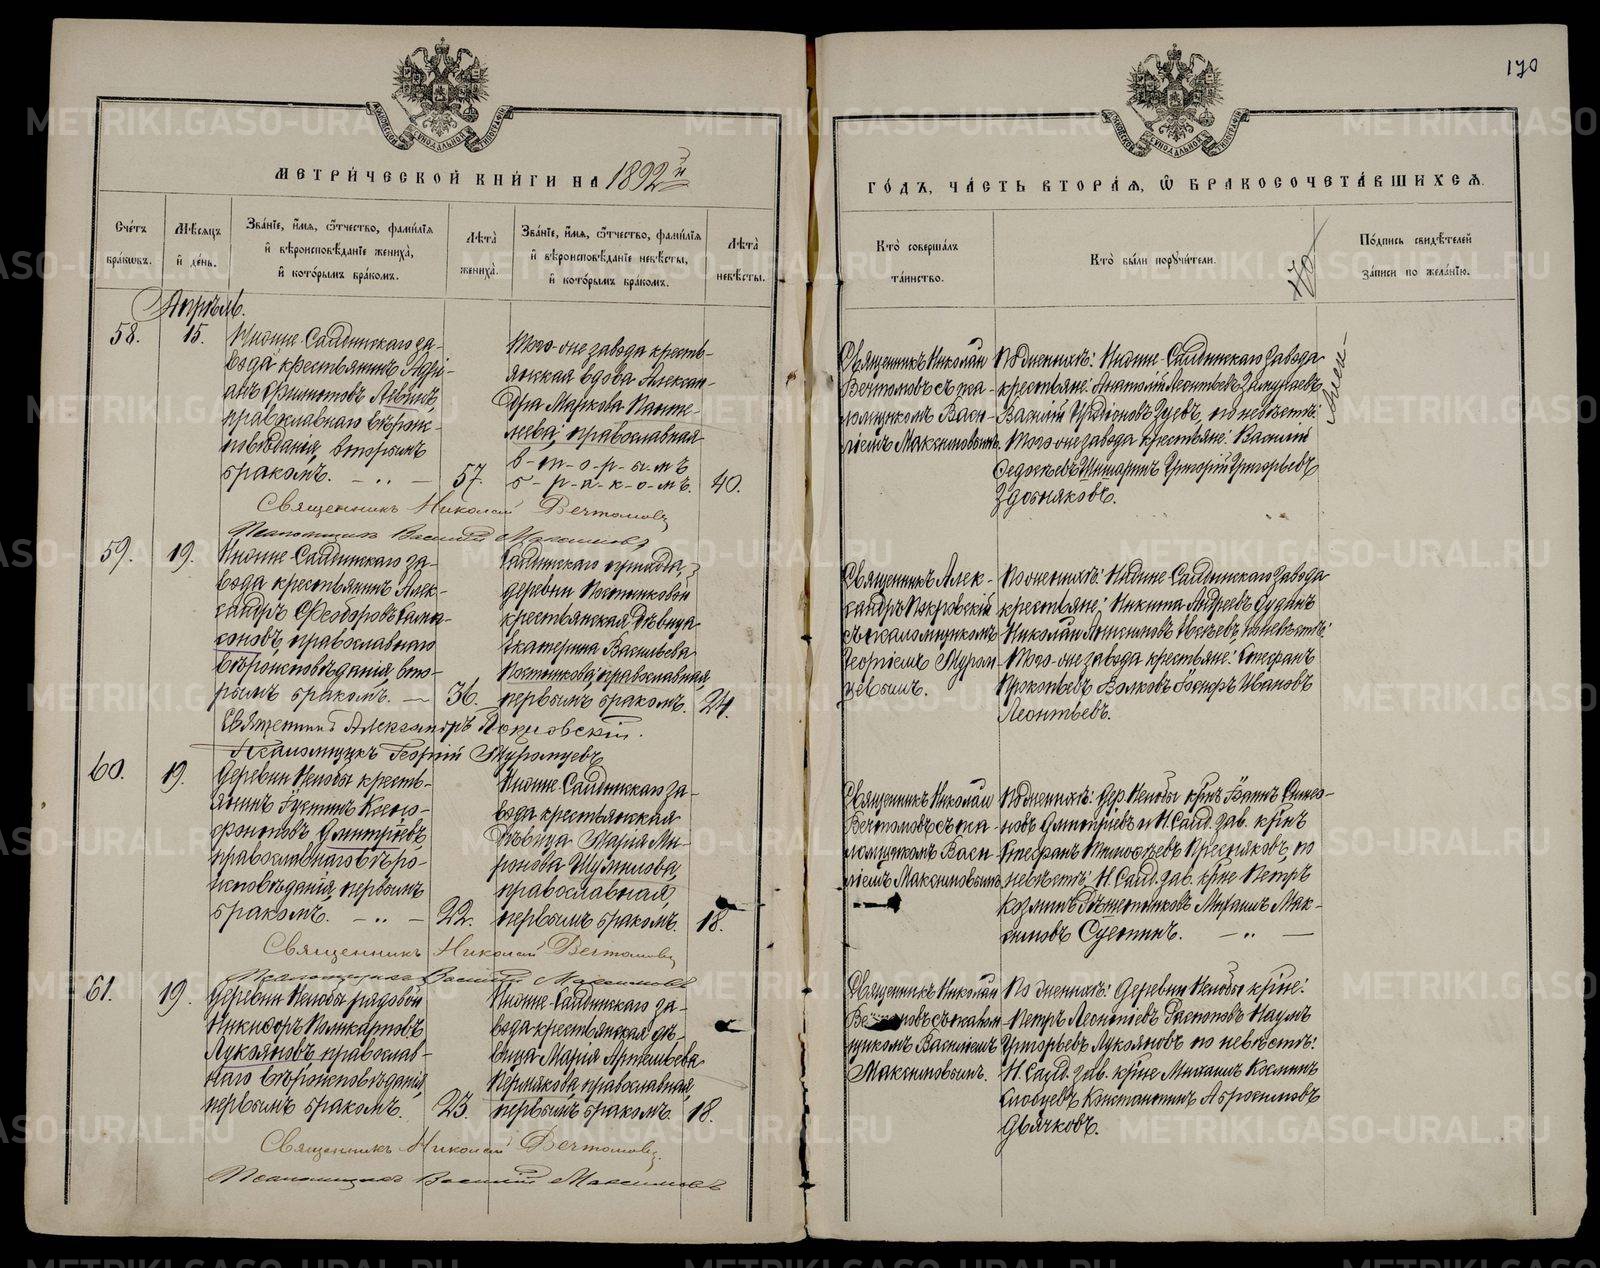 170
МЕТРИ́ЧЕСКОЙ КНИ́ГИ НА 1892й
ГО́ДЪ, ЧА́СТЬ ВТОРА́Я, Ѡ БРАКОСОЧЕТА́ВШИХСЯ.
Сче́тъ бра́ковъ.
Мѣ́сяцъ и́ де́нь.
Зва́нїе, и́мя, ѻ́тчество, фами́лїя и́ вѣроисповѣ́данїе жениха̀, и́ кото́рымъ бра́комъ.
Лѣ́та̀ жениха̀.
Зва́нїе, и́мя, ѻ́тчество, фами́лїя и́ вѣроисповѣ́данїе невѣ́сты, и́ кото́рымъ бра́комъ.
Лѣ́та̀ невѣ́сты.
Кто̀ соверша́лъ та́инство.
Кто̀ бы́ли порꙋчи́тели.
По́дпись свидѣ́телей за́писи по жела́нїю.
170
Апрѣль.
58.
15.
Нижне-Салдинскаго за-
вода крестьянинъ Адрі-
анъ Филиповъ
православнаго вѣроис-
повѣданія, вторымъ
бракомъ. — „ —
57.
Того-же завода кресть-
янская вдова Алексан-
дра Маркова Панте-
лѣева, православная
в-т-о-р-ы-мъ
б-р-а-к-о-мъ.
40.
Священникъ Николай
Вечтомовъ съ пса-
ломщикомъ Васи-
ліемъ Максимовымъ.
По женихѣ: Нижне-Салдинскаго завода
крестьяне: Анатолій Леонтьевъ
Василій Зуевъ, по невѣстѣ:
Того-же завода крестьяне: Василій
Федосѣевъ Шишаринъ Григорій Григорьевъ
Здобняковъ.
Священникъ Николай Вечтомовъ
Псаломщикъ Василій Максимовъ
59.
19.
Нижне-Салдинскаго за-
вода крестьянинъ Алек-
сандръ Феодоровъ Сам-
соновъ, православнаго
вѣроисповѣданія, вто-
рымъ бракомъ. —
36.
Салдинскаго прихода,
деревни Постниковой
крестьянская дѣвица
Екатерина Васильева
Постникова, православная,
первымъ бракомъ.
24.
Священникъ Алек-
сандръ Покровскій
съ псаломщикомъ
Георгіемъ Муром-
цевымъ.
По женихѣ: Нижне-Салдинскаго завода
крестьяне: Никита Андреевъ
Николай Анисимовъ по невѣстѣ:
Того-же завода крестьяне: Стефанъ
Прокопьевъ Волковъ Іосифъ Ивановъ
Леонтьевъ.
Священникъ Александръ Покровскій.
Псаломщикъ Георгій Муромцевъ
60.
19.
Деревни Нелобы кресть-
янинъ Іустинъ Ксено-
фонтовъ Дмитріевъ,
православнаго вѣро-
исповѣданія, первымъ
бракомъ. — „ —
22.
Нижне-Салдинскаго за-
вода крестьянская
дѣвица Марія Ми-
ронова Шумилова,
православная,
первымъ бракомъ.
18.
Священникъ Николай
Вечтомовъ съ пса-
ломщикомъ Васи-
ліемъ Максимовымъ
По женихѣ: дер. Нелобы кр҃нъ Іоаннъ Симео-
новъ Дмитріевъ и Н. Салд. зав. кр҃нъ
Стефанъ Тимофеевъ Пресняковъ, по
невѣстѣ: Н. Салд. зав. кр҃не Петръ
Козминъ Михаилъ Мак-
симовъ — „ —
Священникъ Николай Вечтомовъ
Псаломщикъ Василій Максимовъ
61.
19.
Деревни Нелобы рядовой
Никифоръ Поликарповъ
Лукояновъ православ-
наго вѣроисповѣданія,
первымъ бракомъ.
23.
Нижне-Салдинскаго за-
вода крестьянская дѣ-
вица Марія Артемьева
Пермякова, православная,
первымъ бракомъ.
18.
Священникъ Николай
Вечтомовъ съ псалом-
щикомъ Василіемъ
Максимовымъ.
По женихѣ: Деревни Нелобы кр҃не:
Петръ Леонтіевъ Распоповъ Наумъ
Григорьевъ Лукояновъ по невѣстѣ:
Н. Салд. зав. кр҃не Михаилъ Косминъ
Константинъ Абросимовъ
Дьячковъ.
Священникъ Николай Вечтомовъ.
Псаломщикъ Василій Максимовъ
METRIKI.GASO-URAL.RU